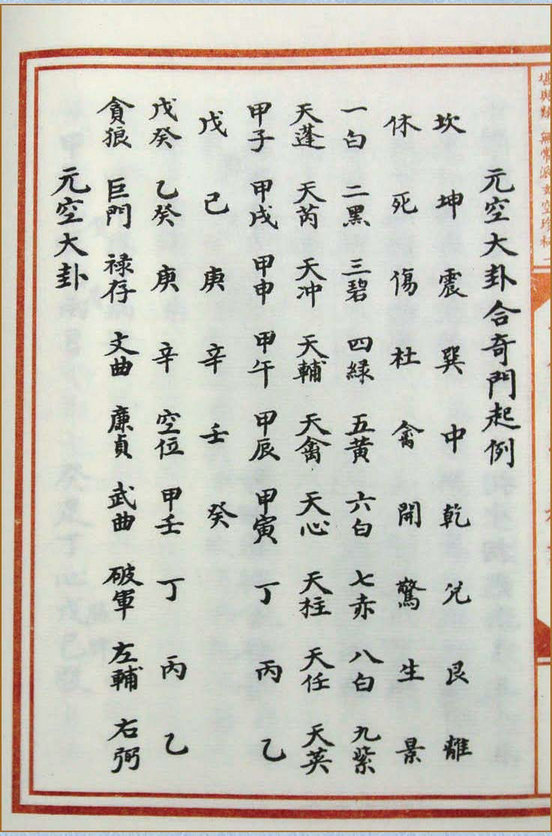 元空大卦合奇門起例
坎 坤 震 巽 中 乾 兌 艮 離
休 死 傷 杜 禽 開 驚 生 景
一白 二黑 三碧 四緑 五黃 六白 七赤 八白 九紫
天蓬 天芮 天冲 天輔 天禽 天心 天柱 天任 天英
甲子 甲戌 甲申 甲午 甲辰 甲寅 丁 丙 乙
戊 己 庚 辛 壬 癸
戊癸 乙癸 庚 辛 空位 甲壬 丁 丙 乙
貪狼 巨門 祿存 文曲 廉貞 武曲 破軍 左輔 右弼
元空大卦